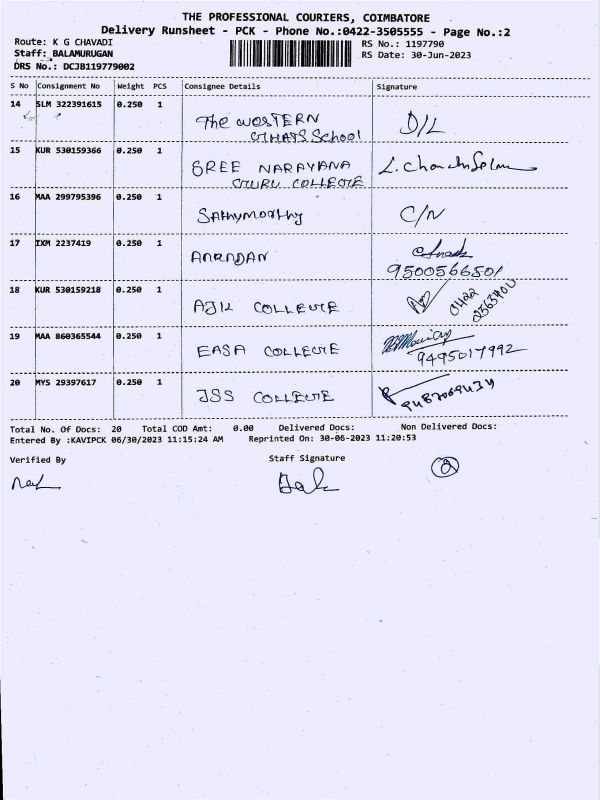 THE PROFESSIONAL COURIERS, COIMBATORE
Delivery Runsheet - PCK - Phone No.:0422-3505555 - Page No.:2
Route: K G CHAVADI RS No.: 1197790
Staff: BALAMURUGAN RS Date: 30-Jun-2023
DRS No.: DCJB119779002
S No Consignment No Weight PCS Consignee Details Signature
14 SLM 322391615 0.250 1 The WESTERN D/L
GHATS School
15 KUR 530159366 0.250 1 SREE NARAYANA
GURU COLLEGE
16 MAA 299795396 0.250 1 Sathymoorthy C/N
17 IXM 2237419 0.250 1 ANANDAN
9500566501
18 KUR 530159218 0.250 1 AJK COLLEGE
19 MAA 860365544 0.250 1 EASA COLLEGE 9495017992
20 MYS 29397617 0.250 1 JSS COLLEGE
Total No. Of Docs: 20 Total COD Amt: 0.00 Delivered Docs: Non Delivered Docs:
Entered By :KAVIPCK 06/30/2023 11:15:24 AM Reprinted On: 30-06-2023 11:20:53
Verified By Staff Signature
2